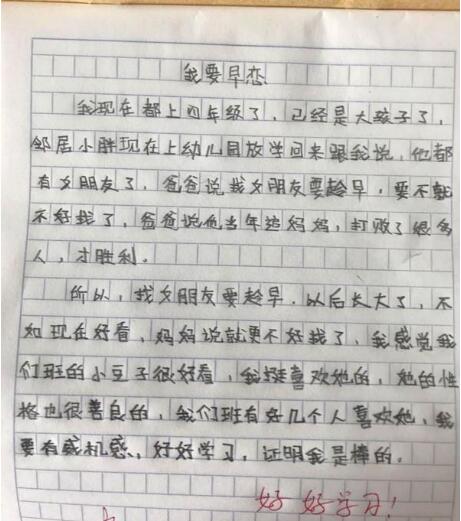 我要早恋
我现在都上四年级了，已经是大孩子了，
邻居小胖现在上幼儿园放学回来跟我说，他都
有女朋友了，爸爸说找女朋友要趁早，要不就
不好找了，爸爸说他当年追妈妈，打败了很多
人，才胜利。
所以，找女朋友要趁早．以后长大了，不
如现在好看，妈妈说就更不好找了，我感觉我
们班的小豆子很好看，我挺喜欢她的，她的性
格也很善良的，我们班有好几个人喜欢她，我
要有威机感，好好学习，证明我是棒的。
好好学习！